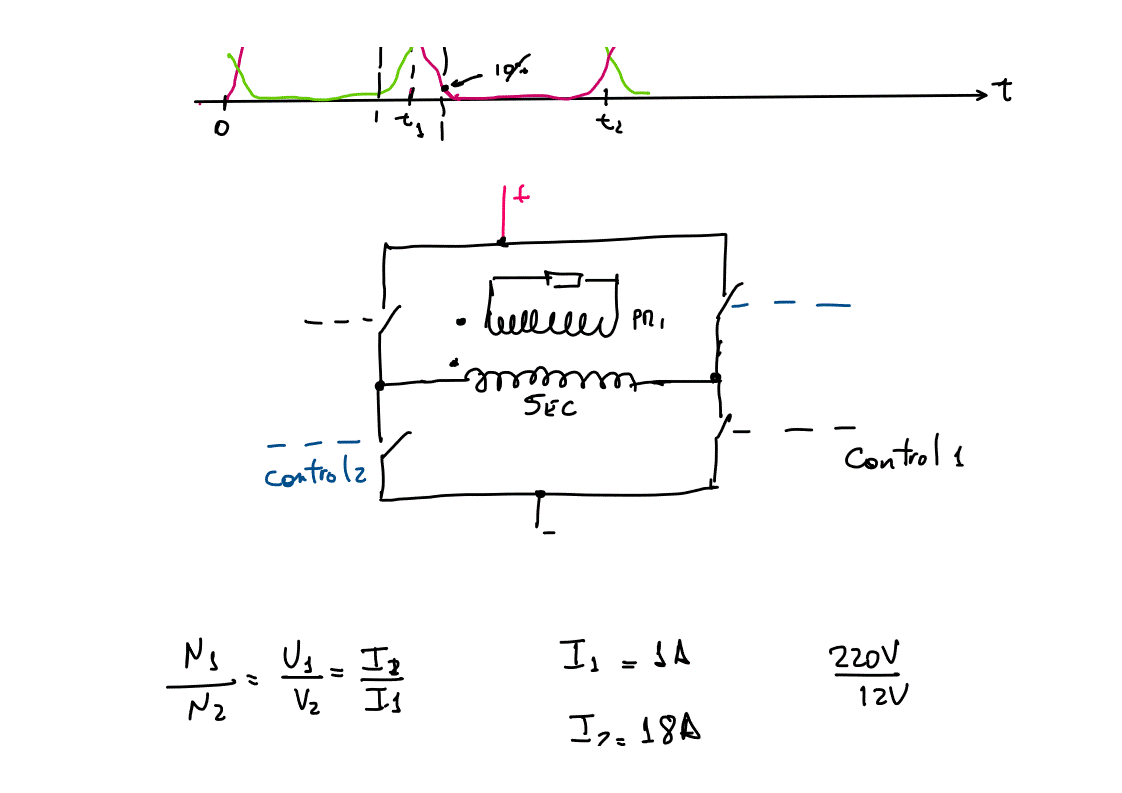 10%
t
0
t1
t2
+
PRI
SEC
control2
Control 1
-
N1/N2 = U1/V2 = I2/I1
I1 = 1A
220V/12V
I2 = 18A